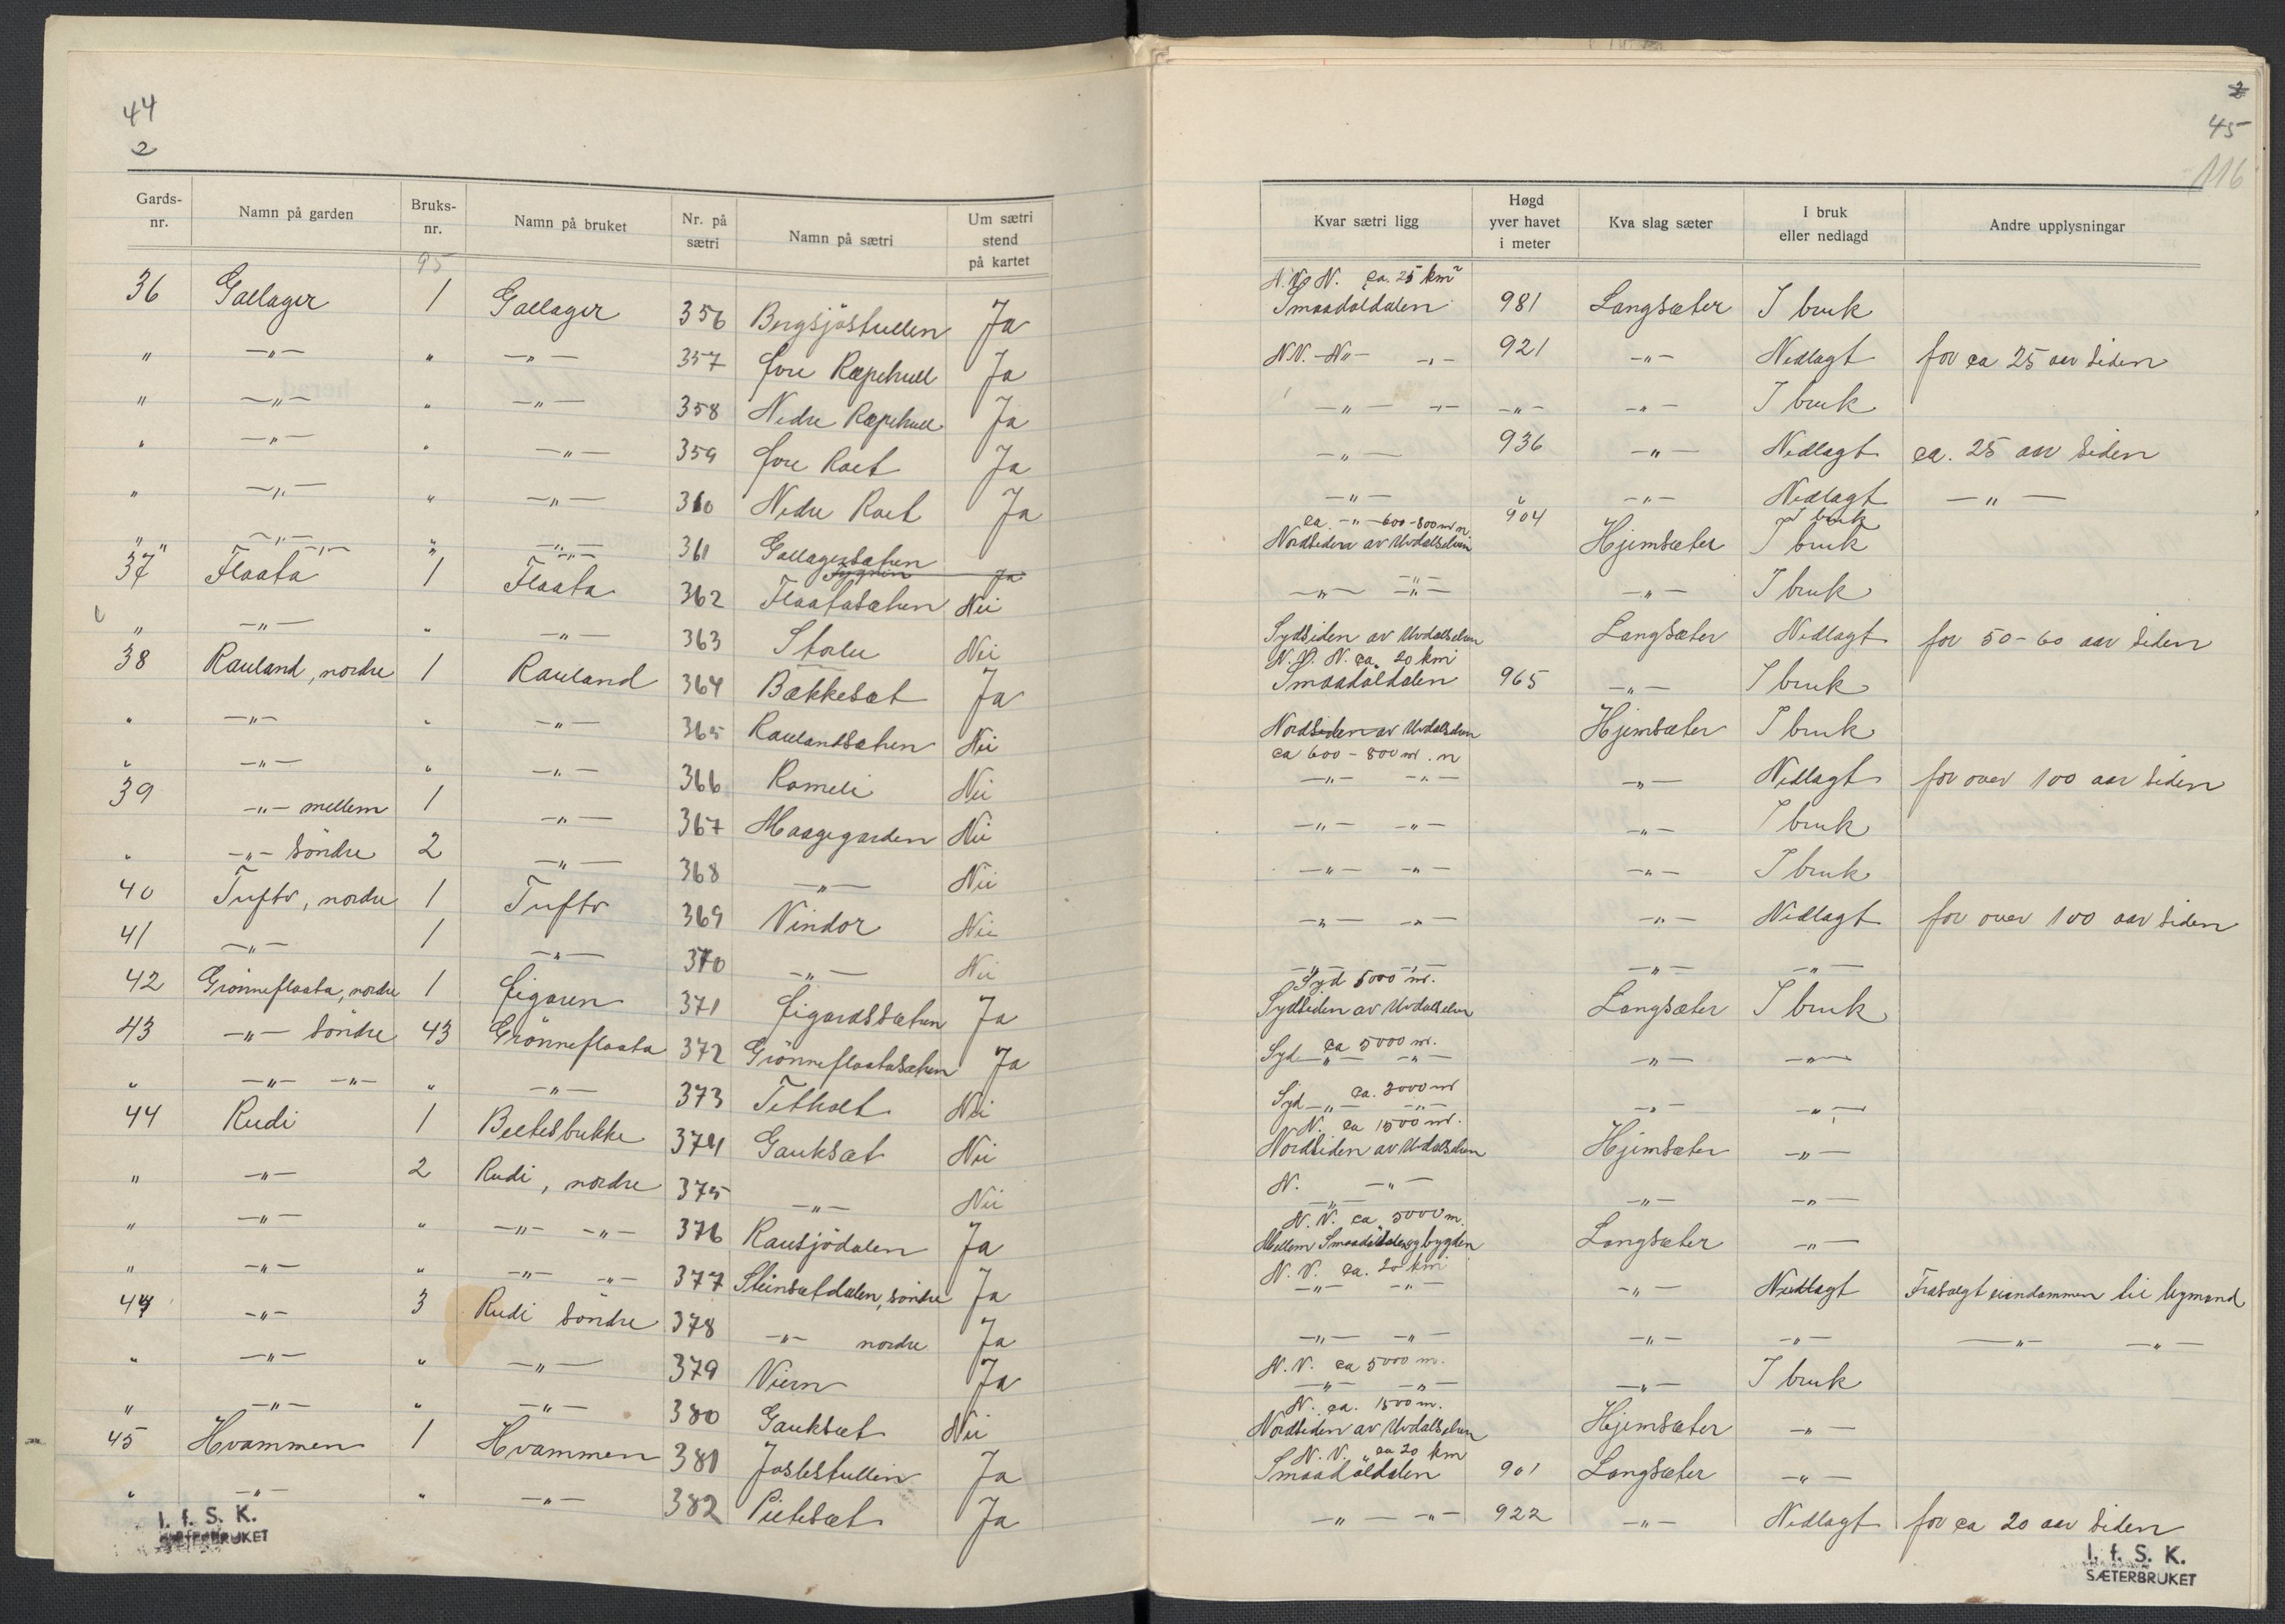 44
2
Gards-nr. Namn på garden Bruks-nr. Namn på bruket Nr. på sætri Namn på sætri Um sætri stend på kartet
95
36 Gallager 1 Gallager 356 Bergsjøstullen Ja
" —"— " —"— 357 Øvre Ja
" —"— " —"— 358 Nedre Ja
" —"— " —"— 359 Øvre Roet Ja
" —"— " —"— 360 Nedre Roet Ja
" —"— " —"— 361 Gallagersæteren
" —"— " —"— Ja
37 Flaata 1 Flaata 362 Flaatasæteren Nei
" —"— " —"— 363 Nei
38 Rauland, nordre 1 Rauland 364 Bækkesæt Ja
" —"— " —"— 365 Raulandsæteren Nei
" —"— " —"— 366 Romeli Nei
39 —"— mellem 1 —"— 367 Haagegarden Nei
" —"— söndre 2 —"— 368 —"— Nei
40 Tufto, nordre 1 Tufto 369 Vindor Nei
41 —"— 1 —"— 370 —"— Nei
42 Grönneflaata, nordre 1 371 Ja
43 —"— söndre 43 Grönneflaata 372 Grönneflaatasæteren Ja
" —"— —"— " —"— 373 Tetholt Nei
44 Rudi 1 374 Gauksæt Nei
" —"— 2 Rudi, nordre 375 —"— Nei
" —"— " —"— —"— 376 Rausjödalen Ja
" —"— " —"— —"— 377 Steinsætdalen, söndre Ja
44 —"— 3 Rudi söndre 378 —"— nordre Ja
" —"— " —"— 379 Ja
" —"— " —"— 380 Gauksæt Nei
45 Hvammen 1 Hvammen 381 Ja
" —"— " —"— 382 Ja
I. f. S. K.
SÆTERBRUKET
2
45
116
Kvar sætri ligg Høgd yver havet i meter Kva slag sæter I bruk eller nedlagd Andre upplysningar
N.V. N. ca. 25 km
Smaadøldalen 981 Langsæter I bruk
N.V. —"— —"— 921 —"— Nedlagt for ca 25 aar siden
—"— —"— —"— —"— I bruk
—"— 936 —"— Nedlagt ca. 25 aar siden
—"— 904 —"— Nedlagt —"—
ca. —"— 600-800 m n I bruk
Nordsiden av Uvdalselven Hjemsæter I bruk
—"— —"— —"— I bruk
Sydsiden av Uvdalselven Langsæter Nedlagt for 50-60 aar siden
N.V. N. ca. 20 km
Smaadøldalen 965 —"— I bruk
Nordsiden av Uvdalselven Hjemsæter I bruk
ca 600-800 m. n
—"— —"— —"— Nedlagt for over 100 aar siden
—"— —"— —"— I bruk
—"— —"— —"— I bruk
—"— —"— —"— Nedlagt for over 100 aar siden
—"— —"— —"— —"—
Syd 5000 m.
Sydsiden av Uvdalselven Langsæter I bruk
Syd ca 5000 m.
—"— —"— —"— —"—
Syd ca. 3000 m
—"— —"— —"— —"—
N. ca 1500 m.
Nordsiden av Uvdalselven Hjemsæter —"—
N. —"—
—"— —"— —"—
N.V. ca 5000 m.
Mellem Smaadøldalen og bygden Langsæter —"—
N.V. ca. 20 km
—"— —"— —"— Nedlagt Frasolgt eiendommen til bymand
—"— —"— —"— —"— —"— —"—
N.V. ca 5000 m.
—"— —"— —"— I bruk
N. ca. 1500 m.
Nordsiden av Uvdalselven Hjemsæter —"—
N.V. ca 20 km
Smaadøldalen 901 Langsæter —"—
—"— —"— 922 —"— Nedlagt for ca 20 aar siden
I. f. S. K.
SÆTERBRUKET